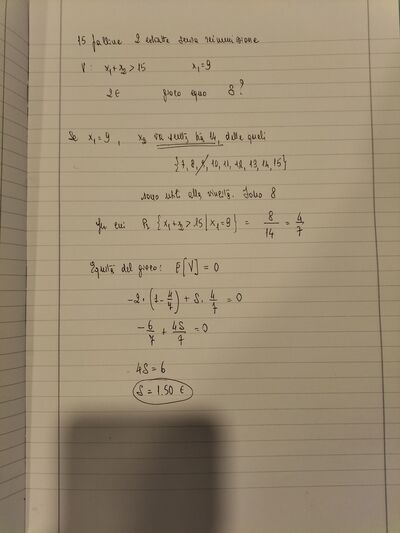 15 palline 2 estratte senza reimmissione
V: x₁+x₂ > 15 x₁=9
2€ gioco equo S?
Se x₁=9, x₂ va scelta tra 14, delle quali
{7, 8, 9, 10, 11, 12, 13, 14, 15}
sono utili alla vincita. Sono 8
Per cui Pr {x₁+x₂ > 15 | x₁=9} = 8/14 = 4/7
Equità del gioco: E[V] = 0
-2·(1-4/7) + S·4/7 = 0
-6/7 + 4S/7 = 0
4S = 6
S = 1.50 €